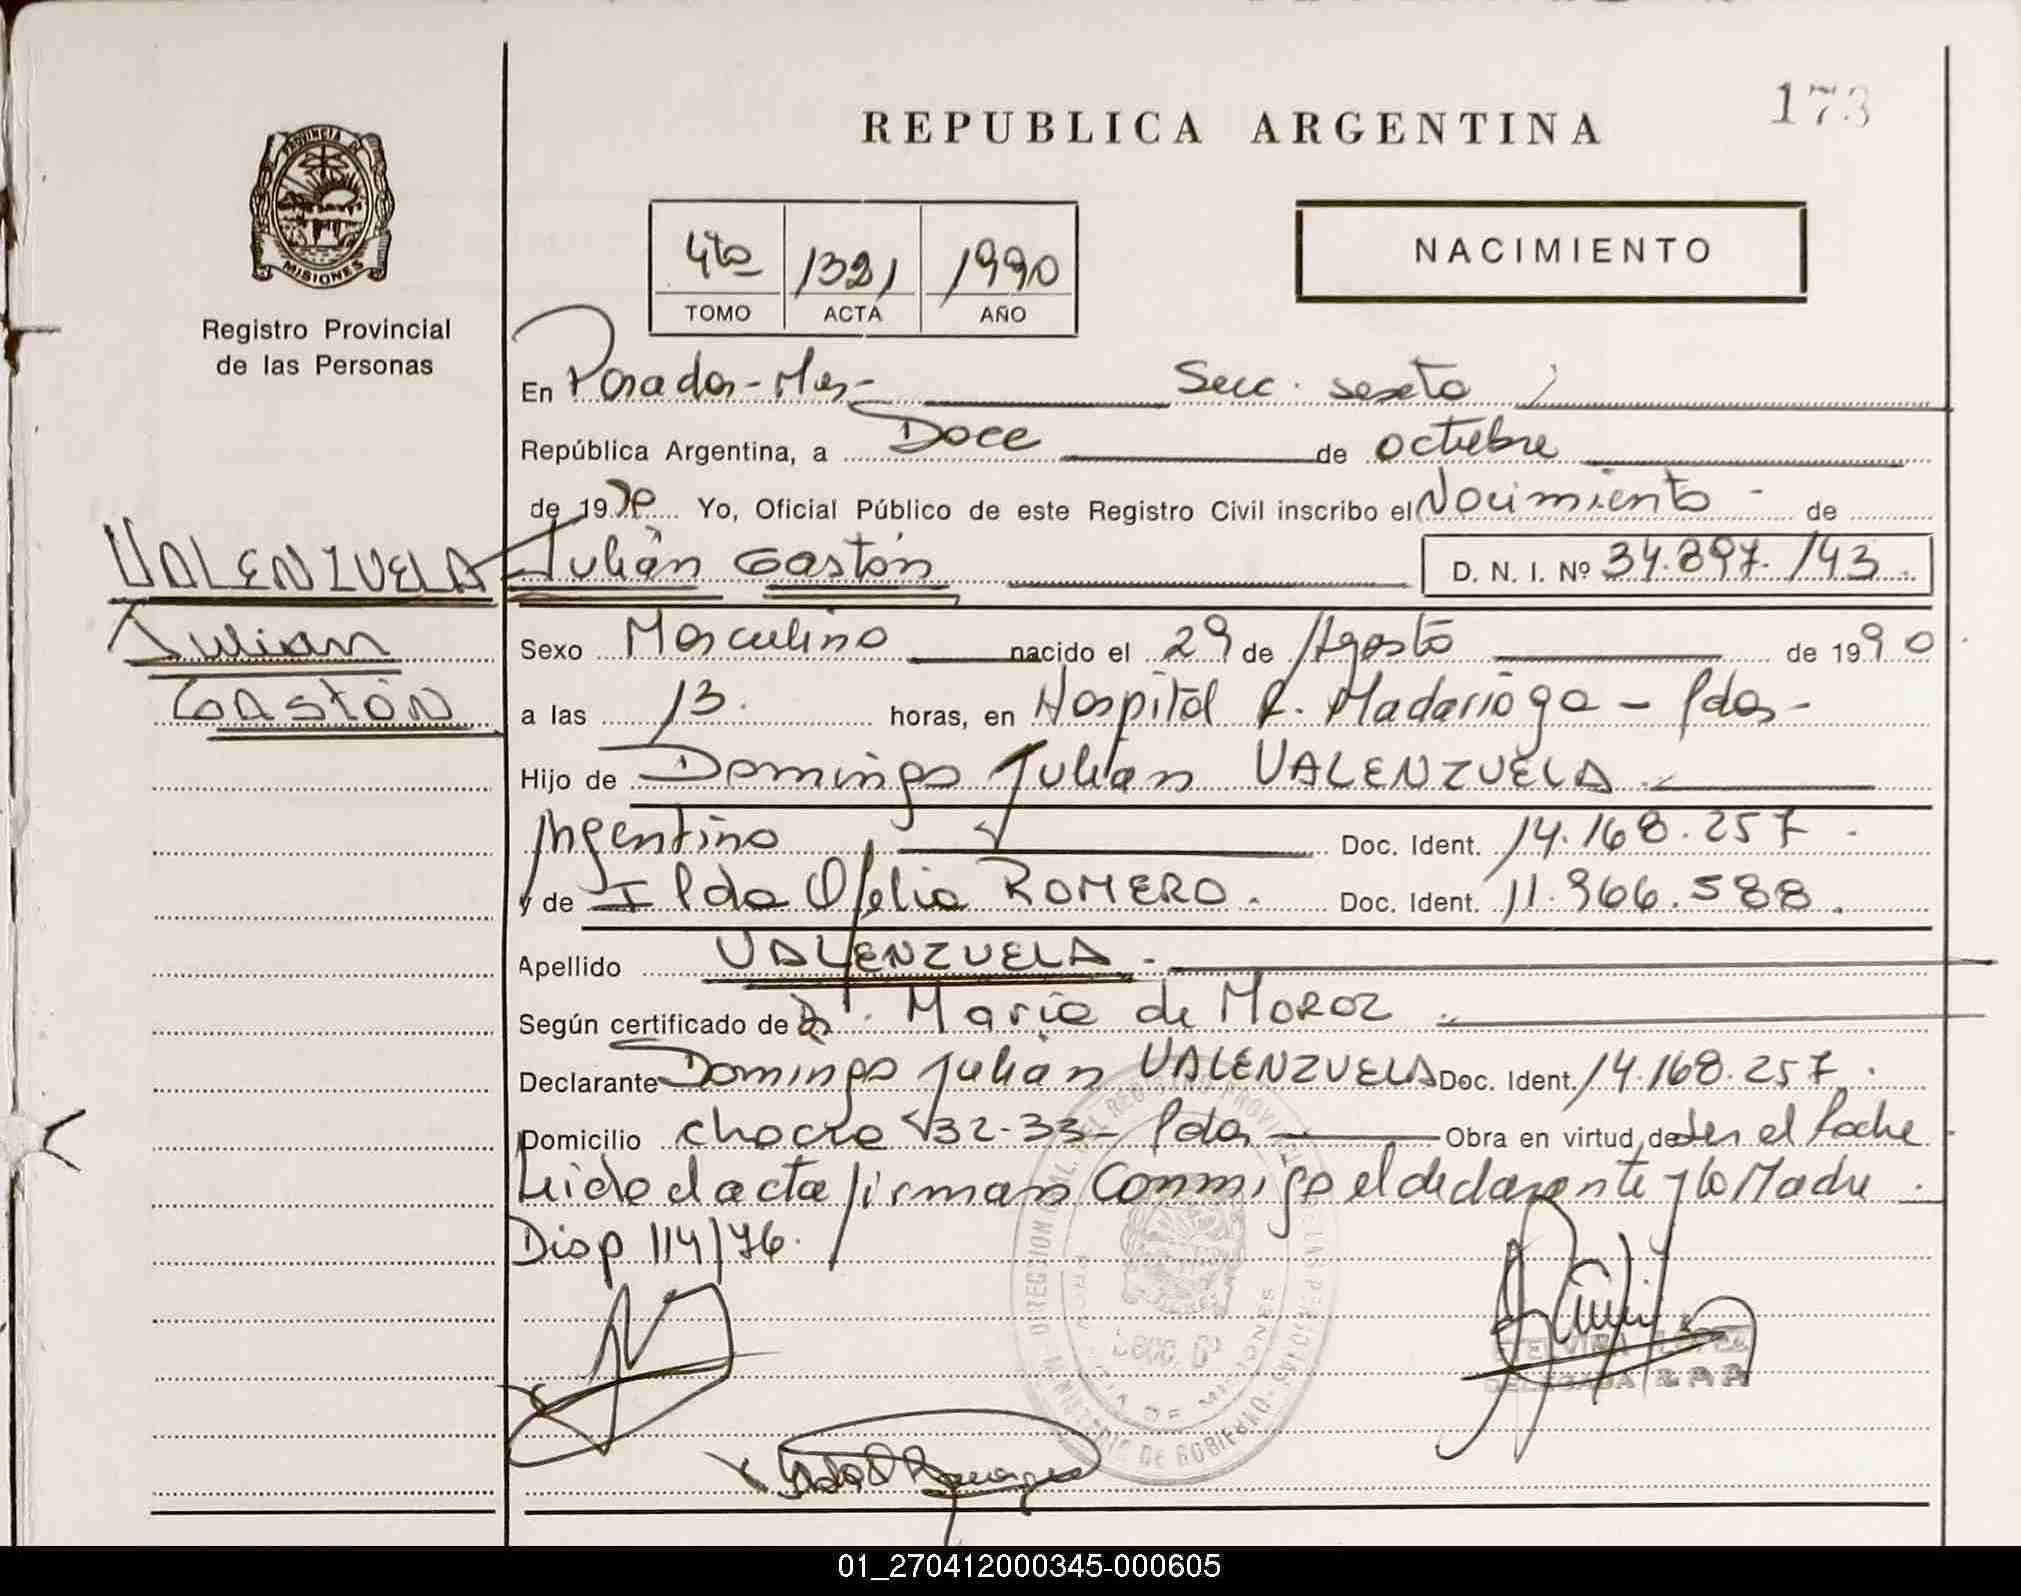 173
REPUBLICA ARGENTINA
PROVINCIA DE
MISIONES
Registro Provincial
de las Personas
4to 1321 1990
TOMO ACTA AÑO
NACIMIENTO
En Posadas - Mnes - Secc. sexta
República Argentina, a Doce de octubre
de 1990 Yo, Oficial Público de este Registro Civil inscribo el Nacimiento - de
VALENZUELA
Julian
Gastón
Julián Gastón D. N. I. Nº 34.897.143.
Sexo Masculino nacido el 29 de Agosto de 1990
a las 13. horas, en Hospital R. Madariaga - Pdas -
Hijo de Domingo Julián VALENZUELA
Argentino Doc. Ident. 14.168.257 -
y de Ilda Ofelia ROMERO. Doc. Ident. 11.966.588.
Apellido VALENZUELA -
Según certificado de Dr. Maria de MOROZ
Declarante Domingo Julián VALENZUELA Doc. Ident. 14.168.257.
Domicilio chacra 32-33 - Pdas Obra en virtud de ser el Padre
Leida el acta firman Conmigo el declarante y la Madre.
Disp 114/76.
DIRECCION REGISTRO PROVINCIAL DE LAS PERSONAS
MINISTERIO DE GOBIERNO
SECC. 6ª
PROVINCIA DE MISIONES
ELVIRA
DELEGADA
01_270412000345-000605